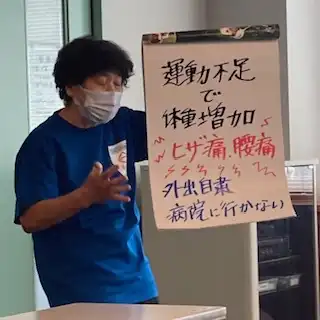 運動不足
で
体重増加
ヒザ痛、腰痛
外出自粛
病院に行かない